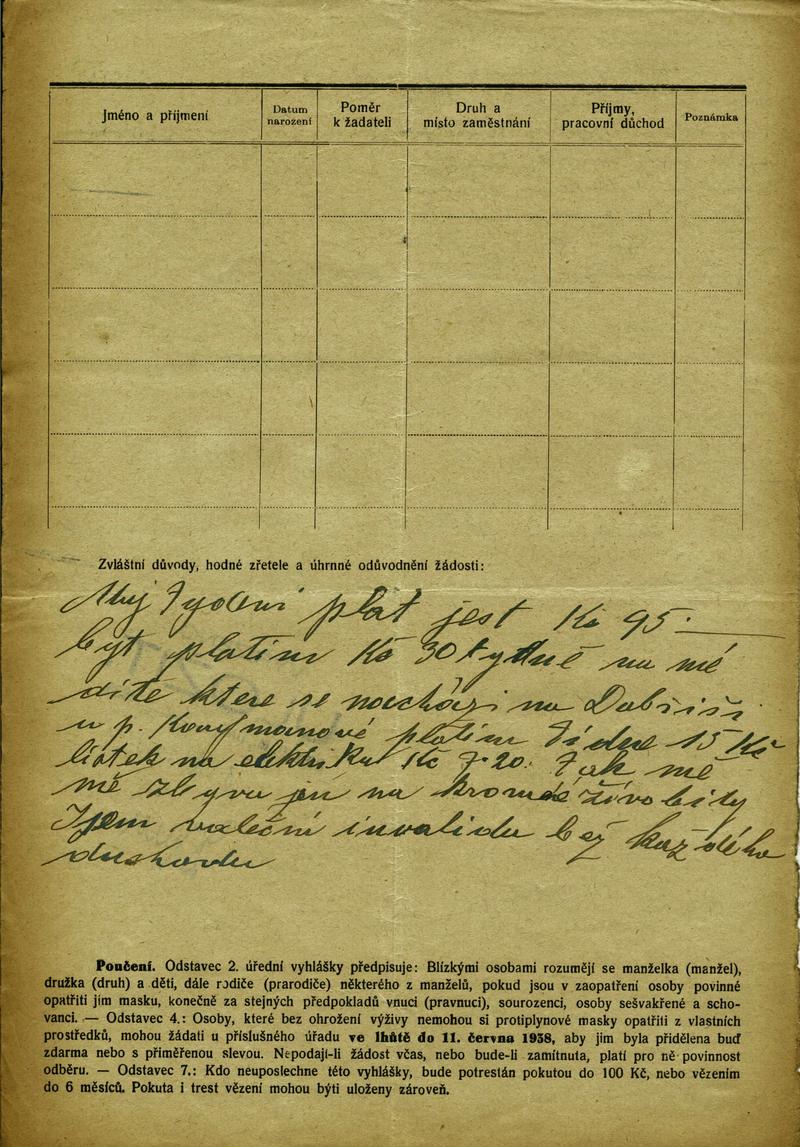 Jméno a příjmení
Datum
narození
Poměr
k žadateli
Druh a
místo zaměstnání
Příjmy,
pracovní důchod
Poznámka
Zvláštní důvody, hodné zřetele a úhrnné odůvodnění žádosti:
Můj plat jest Kč 95.
byt platím Kč 30 týdně na mé
dítě které se nachází na
u p. platím 15 Kč
lístek na elektriku Kč 7·20. Tak mě
živobytí
Jsem válečný invalida bez
důchodu
Poučení. Odstavec 2. úřední vyhlášky předpisuje: Blízkými osobami rozumějí se manželka (manžel),
družka (druh) a děti, dále rodiče (prarodiče) některého z manželů, pokud jsou v zaopatření osoby povinné
opatřiti jim masku, konečně za stejných předpokladů vnuci (pravnuci), sourozenci, osoby sešvakřené a scho-
vanci. — Odstavec 4.: Osoby, které bez ohrožení výživy nemohou si protiplynové masky opatřiti z vlastních
prostředků, mohou žádati u příslušného úřadu ve lhůtě do 11. června 1938, aby jim byla přidělena buď
zdarma nebo s přiměřenou slevou. Nepodají-li žádost včas, nebo bude-li zamítnuta, platí pro ně povinnost
odběru. — Odstavec 7.: Kdo neuposlechne této vyhlášky, bude potrestán pokutou do 100 Kč, nebo vězením
do 6 měsíců. Pokuta i trest vězení mohou býti uloženy zároveň.